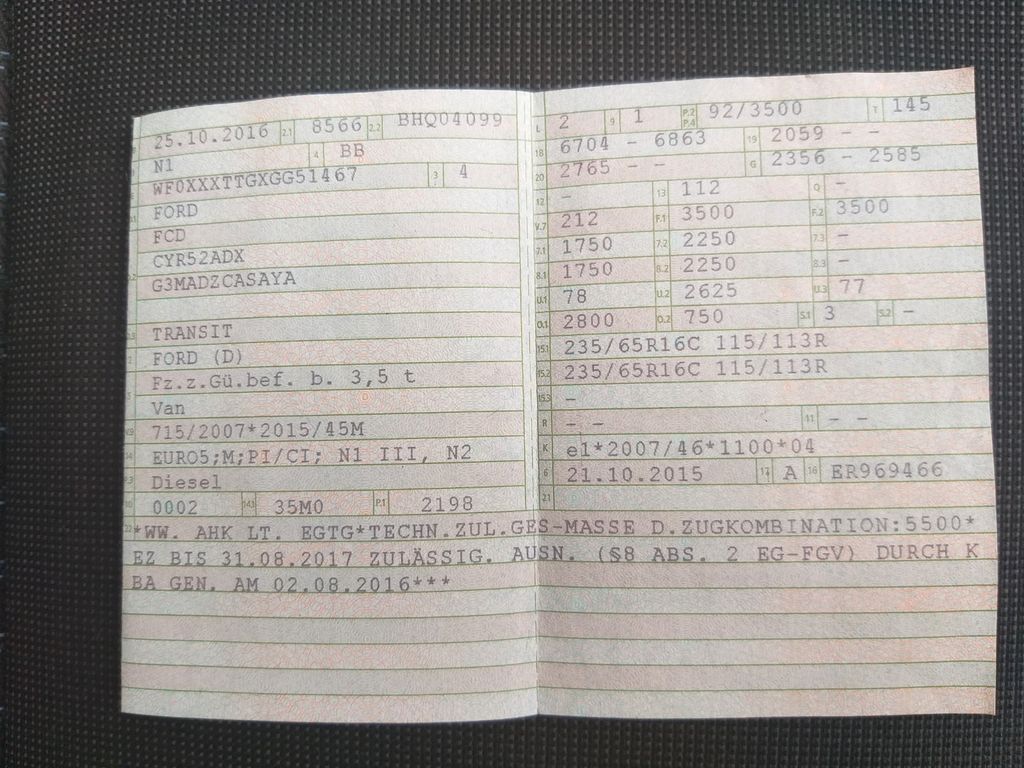 25.10.2016 2.1 8566 2.2 BHQ04099
N1 4 BB
WF0XXXTTGXGG51467 3 4
FORD
FCD
CYR52ADX
G3MADZCASAYA
TRANSIT
FORD (D)
Fz.z.Gü.bef. b. 3,5 t
Van
715/2007*2015/45M
EURO5;M;PI/CI; N1 III, N2
Diesel
0002 14.1 35M0 P.1 2198
L 2 9 1 P.2 P.4 92/3500 T 145
18 6704 - 6863 19 2059 - -
20 2765 - - G 2356 - 2585
12 - 13 112 Q -
V.7 212 F.1 3500 F.2 3500
7.1 1750 7.2 2250 7.3 -
8.1 1750 8.2 2250 8.3 -
U.1 78 U.2 2625 U.3 77
O.1 2800 O.2 750 S.1 3 S.2 -
15.1 235/65R16C 115/113R
15.2 235/65R16C 115/113R
15.3 -
R - - 11 - -
K e1*2007/46*1100*04
6 21.10.2015 17 A 16 ER969466
21
22 *WW. AHK LT. EGTG*TECHN.ZUL.GES-MASSE D.ZUGKOMBINATION:5500*
EZ BIS 31.08.2017 ZULÄSSIG. AUSN. (§8 ABS. 2 EG-FGV) DURCH K
BA GEN. AM 02.08.2016***